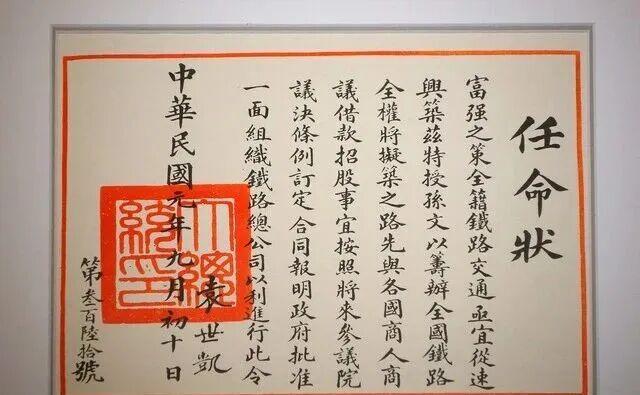 任命狀
富强之策全籍鐵路交通亟宜從速
興築茲特授孫文以籌辦全國鐵路
全權將擬築之路先與各國商人商
議借款招股事宜按照將來參議院
議決條例訂定合同報明政府批准
一面組織鐵路總公司以利進行此令
袁世凱
大總統印
中華民國元年九月初十日
第叁百陸拾號